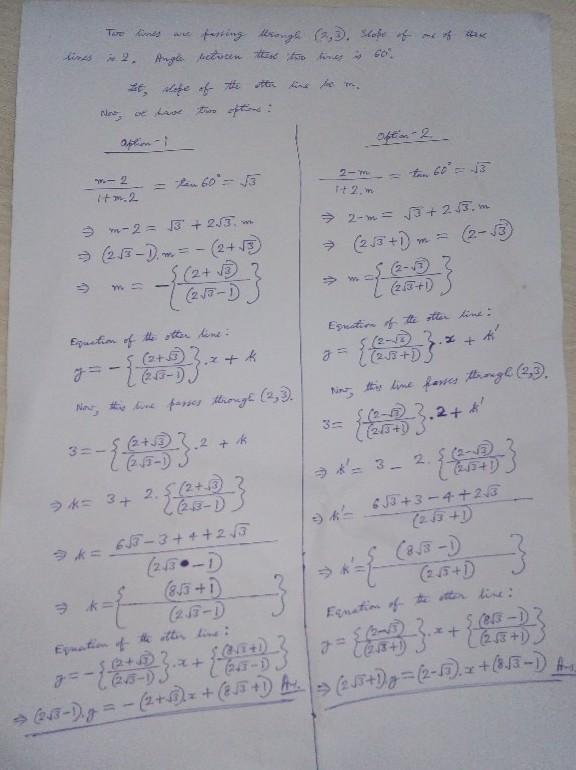 Two lines are passing through (2,3). Slope of one of these
lines is 2. Angle between these two lines is 60°.
Let, slope of the other line be m.
Now, we have two options:
Option-1
(m-2)/(1+m.2) = tan 60° = √3
⇒ m-2 = √3 + 2√3. m
⇒ (2√3-1). m = -(2+√3)
⇒ m = -{(2+√3)/(2√3-1)}
Equation of the other line:
y = -{(2+√3)/(2√3-1)}.x + k
Now, this line passes through (2,3).
3 = -{(2+√3)/(2√3-1)}.2 + k
⇒ k = 3 + 2.{(2+√3)/(2√3-1)}
⇒ k = (6√3-3+4+2√3)/(2√3-1)
⇒ k = {(8√3+1)/(2√3-1)}
Equation of the other line:
y = -{(2+√3)/(2√3-1)}.x + {(8√3+1)/(2√3-1)}
⇒ (2√3-1).y = -(2+√3).x + (8√3+1) Ans.
Option-2
(2-m)/(1+2.m) = tan 60° = √3
⇒ 2-m = √3 + 2√3. m
⇒ (2√3+1) m = (2-√3)
⇒ m = {(2-√3)/(2√3+1)}
Equation of the other line:
y = {(2-√3)/(2√3+1)}.x + k'
Now, this line passes through (2,3).
3 = {(2-√3)/(2√3+1)}.2 + k'
⇒ k' = 3 - 2.{(2-√3)/(2√3+1)}
⇒ k' = (6√3+3-4+2√3)/(2√3+1)
⇒ k' = {(8√3-1)/(2√3+1)}
Equation of the other line:
y = {(2-√3)/(2√3+1)}.x + {(8√3-1)/(2√3+1)}
⇒ (2√3+1).y = (2-√3).x + (8√3-1) Ans.